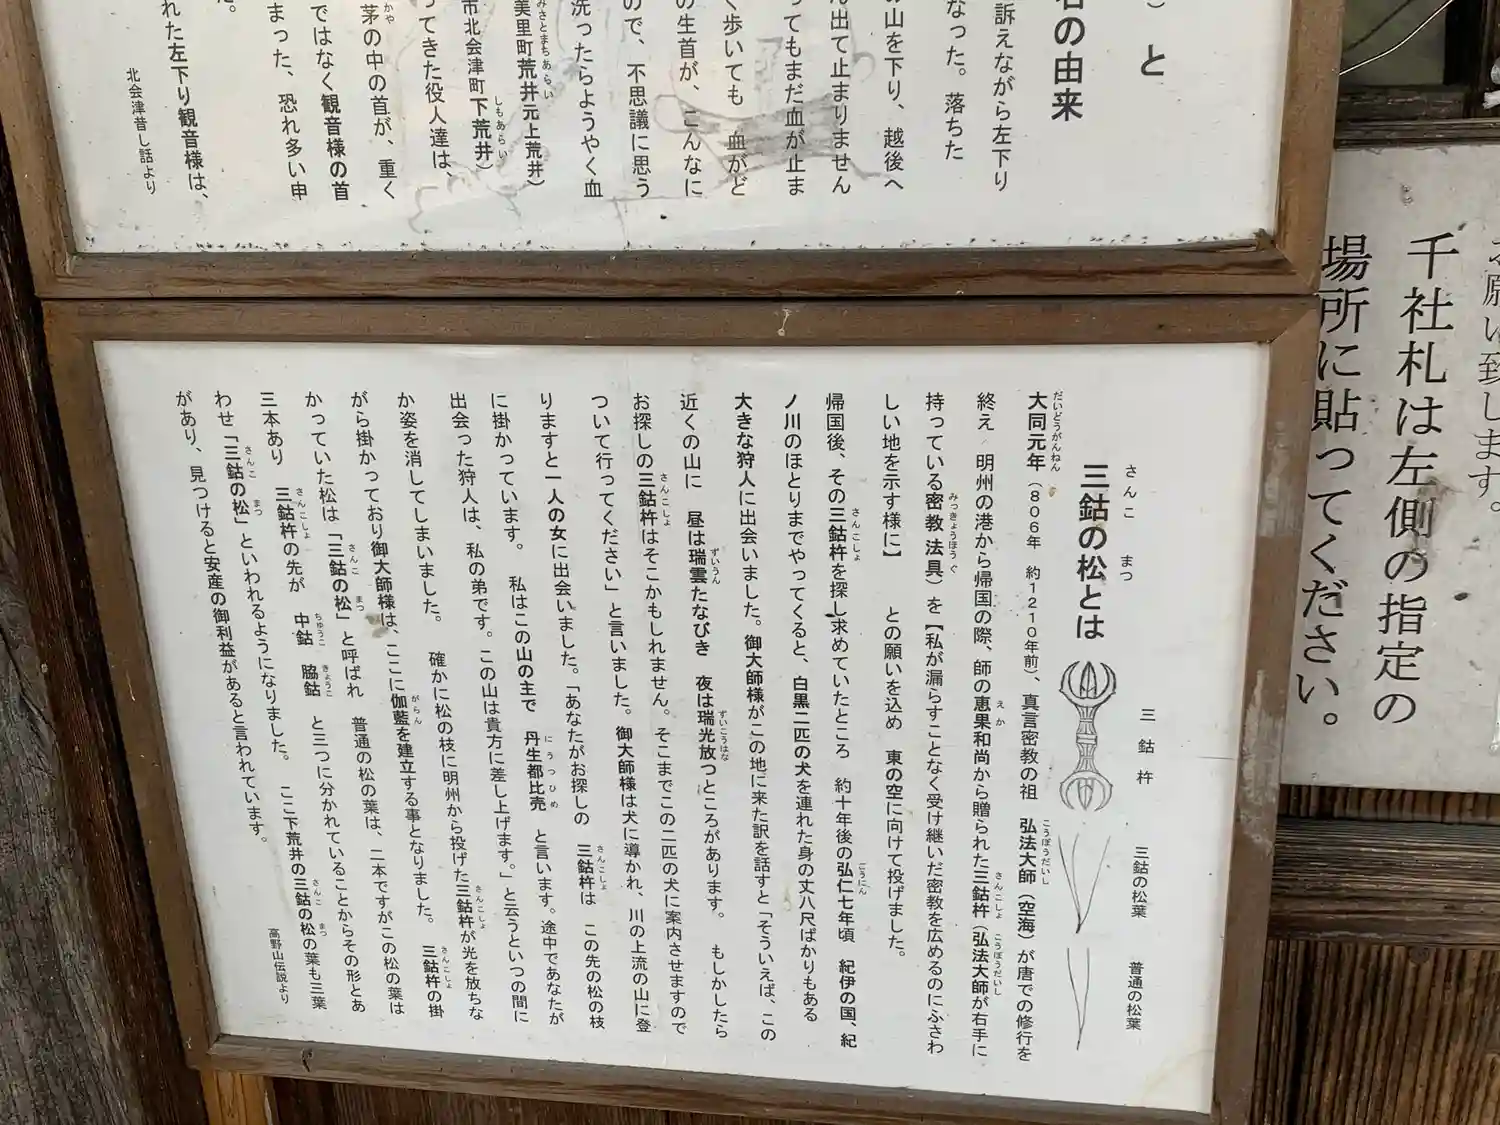 お願い致します。
千社札は左側の指定の
場所に貼ってください。
）と
の由来
訴えながら左下り
なった。落ちた
山を下り、越後へ
ん出て止まりません
ってもまだ血が止ま
く歩いても　血がど
の生首が、こんなに
ので、不思議に思う
洗ったらようやく血
みさとまちあらい
美里町荒井元上荒井）
しもあらい
市北会津町下荒井）
ってきた役人達は、
かや
茅の中の首が、重く
ではなく観音様の首
まった、恐れ多い申
れた左下り観音様は、
た。
北会津昔し話より
さんこ　まつ
三鈷の松とは
三鈷杵
三鈷の松葉
普通の松葉
だいどうがんねん　こうぼうだいし
大同元年（８０６年　約１２１０年前）、真言密教の祖　弘法大師（空海）が唐での修行を
えか　さんこしょ　こうぼうだいし
終え　明州の港から帰国の際、師の恵果和尚から贈られた三鈷杵（弘法大師が右手に
みっきょうほうぐ
持っている密教法具）を【私が漏らすことなく受け継いだ密教を広めるのにふさわ
しい地を示す様に】　との願いを込め　東の空に向けて投げました。
さんこしょ　こうにん
帰国後、その三鈷杵を探し求めていたところ　約十年後の弘仁七年頃　紀伊の国、紀
ノ川のほとりまでやってくると、白黒二匹の犬を連れた身の丈八尺ばかりもある
大きな狩人に出会いました。御大師様がこの地に来た訳を話すと「そういえば、この
ずいうん　ずいこうはな
近くの山に　昼は瑞雲たなびき　夜は瑞光放つところがあります。　もしかしたら
さんこしょ
お探しの三鈷杵はそこかもしれません。そこまでこの二匹の犬に案内させますので
ついて行ってください」と言いました。御大師様は犬に導かれ、川の上流の山に登
さんこしょ
りますと一人の女に出会いました。「あなたがお探しの　三鈷杵は　この先の松の枝
にうつひめ
に掛かっています。　私はこの山の主で　丹生都比売　と言います。途中であなたが
出会った狩人は、私の弟です。この山は貴方に差し上げます。」と云うといつの間に
さんこしょ
か姿を消してしまいました。　確かに松の枝に明州から投げた三鈷杵が光を放ちな
がらん　さんこしょ
がら掛かっており御大師様は、ここに伽藍を建立する事となりました。　三鈷杵の掛
さんこ　まつ
かっていた松は「三鈷の松」と呼ばれ　普通の松の葉は、二本ですがこの松の葉は
さんこしょ　ちゅうこ　きょうこ
三本あり　三鈷杵の先が　中鈷　脇鈷　と三つに分かれていることからその形とあ
さんこ　まつ　さんこ　まつ
わせ「三鈷の松」といわれるようになりました。　ここ下荒井の三鈷の松の葉も三葉
があり、見つけると安産の御利益があると言われています。
高野山伝説より